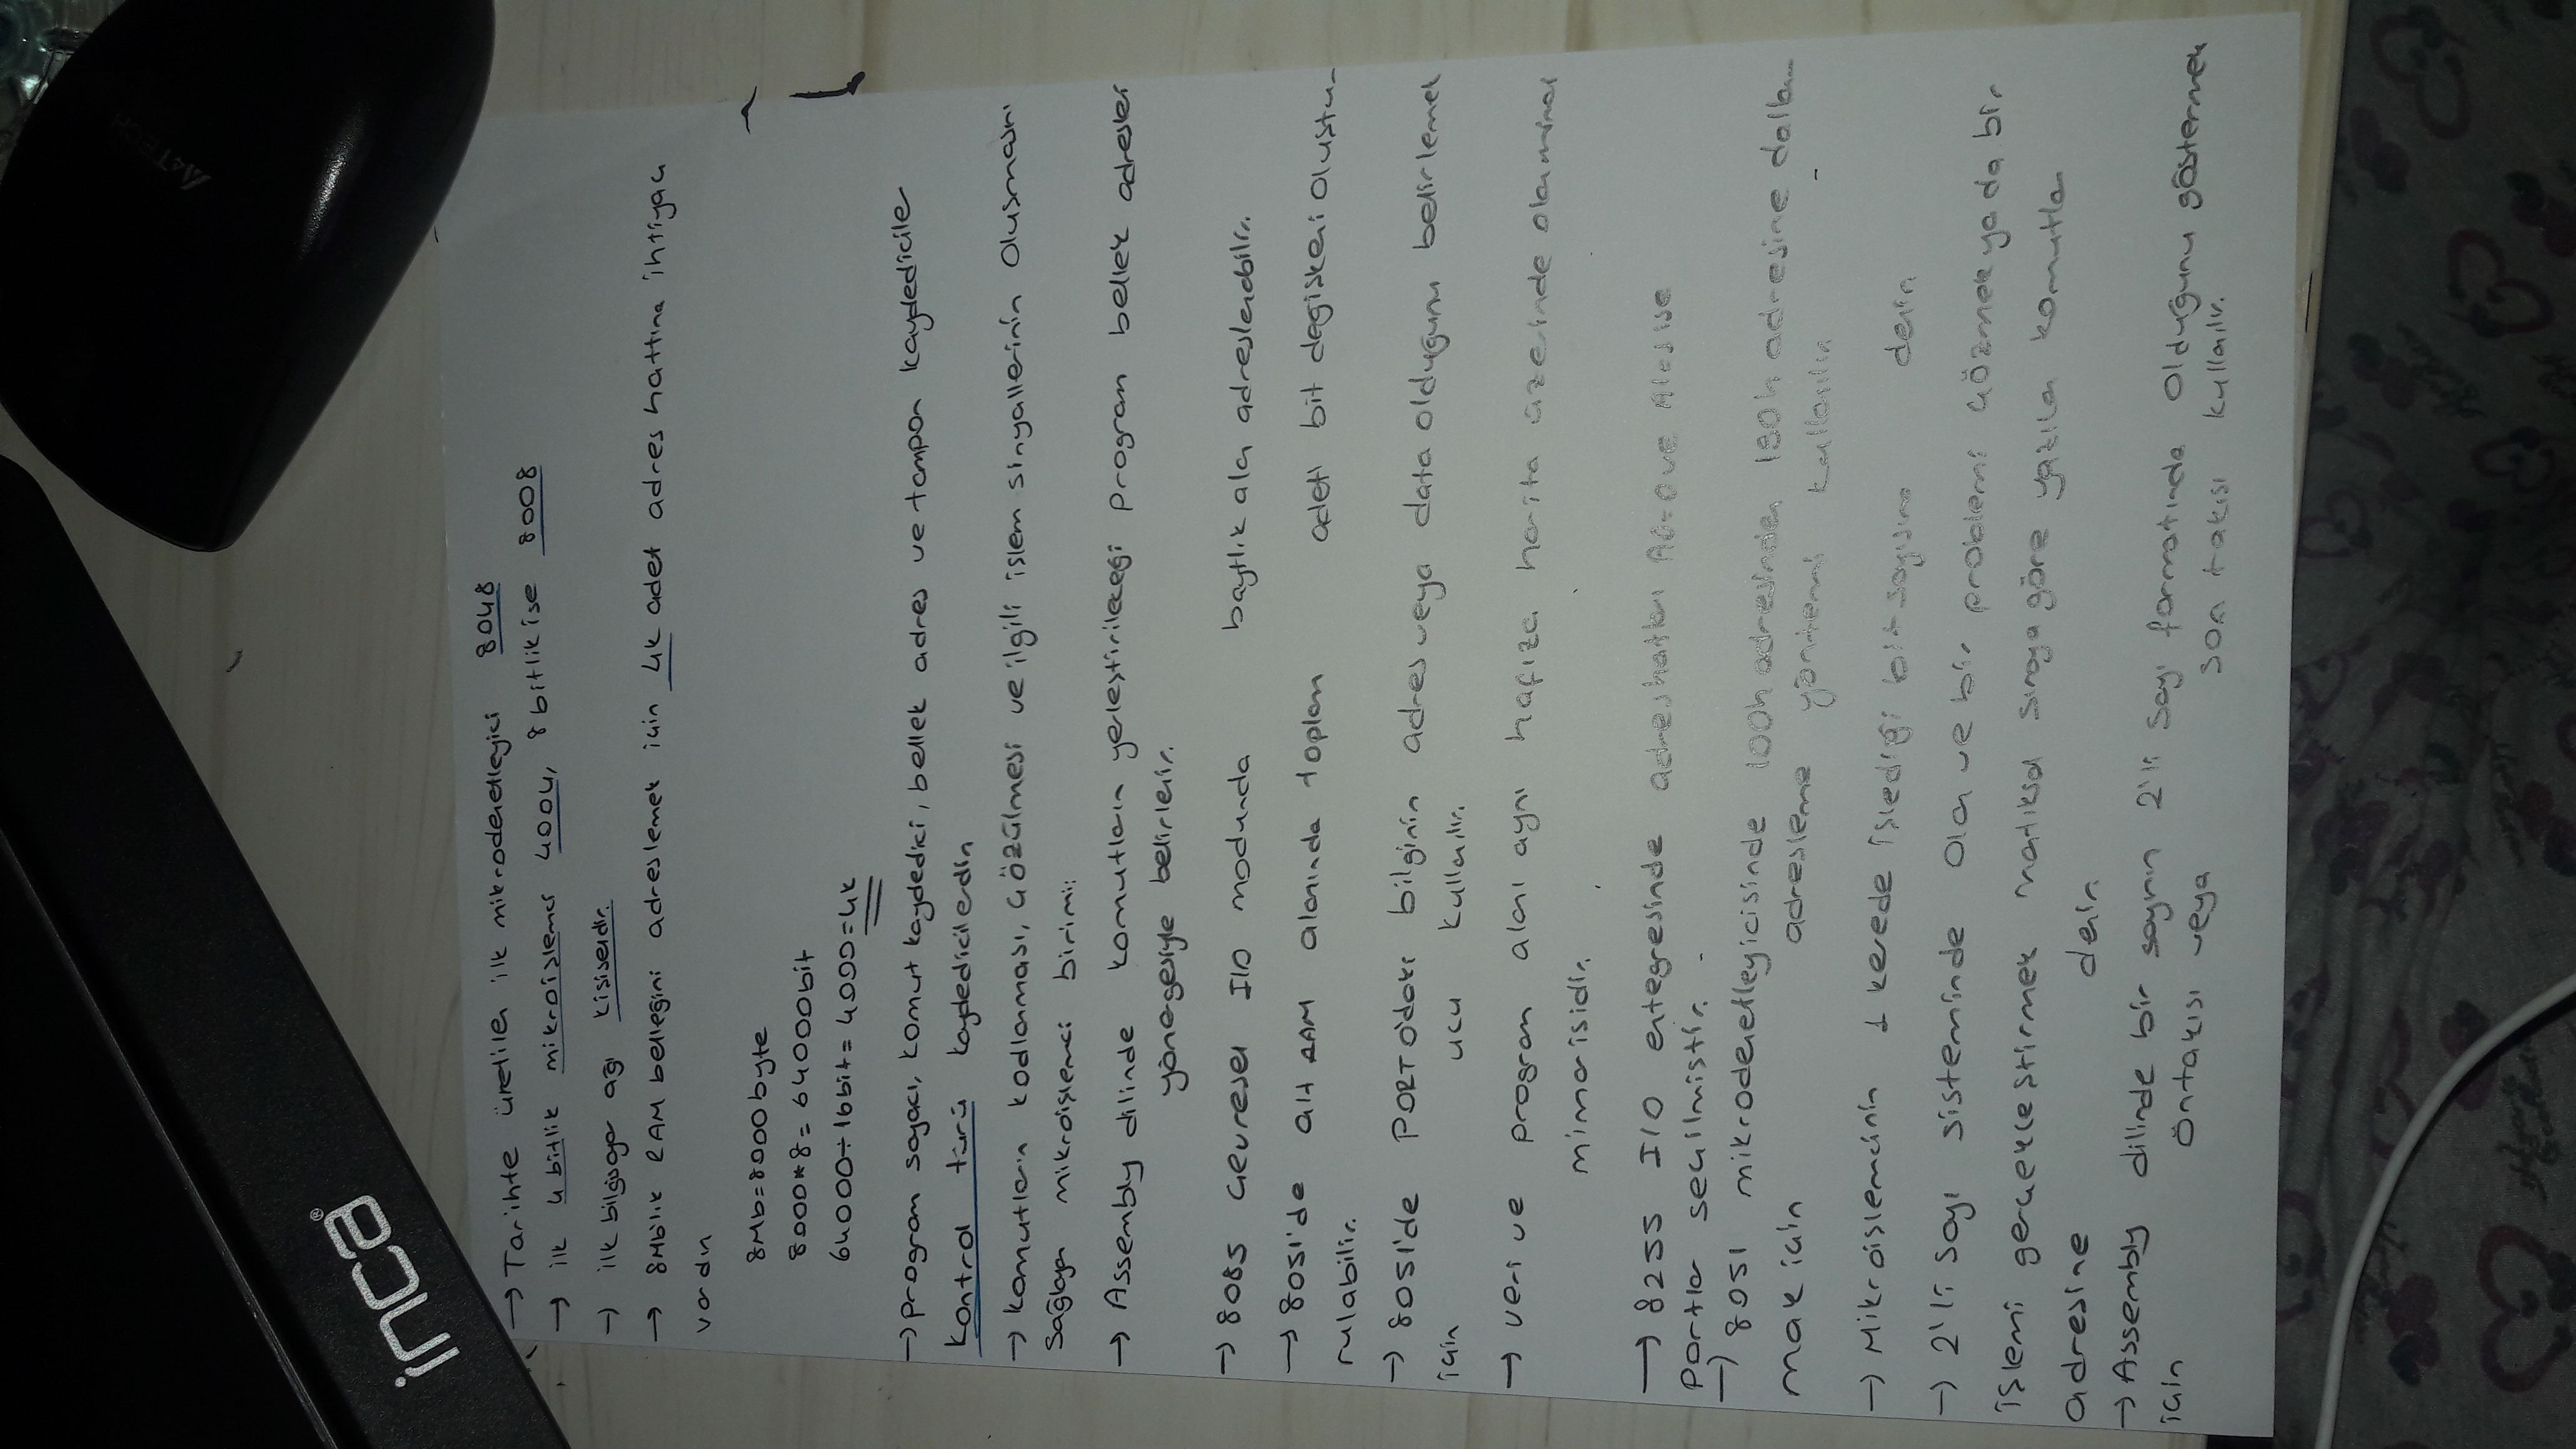 A4TECH
inca®
→ Tarihte üretilen ilk mikrodenetleyici 8048
→ ilk 4 bitlik mikroişlemci 4004, 8 bitlik ise 8008
→ ilk bilgisayar ağı kişiseldir.
→ 8Mb'lık RAM belleğini adreslemek için 4k adet adres hattına ihtiyaç
vardır
8Mb=8000 byte
8000*8= 64000bit
64000÷16bit= 4000=4k
→ program sayacı, komut kaydedici, bellek adres ve tampon kaydediciler
kontrol türü kaydedicilerdir
→ komutların kodlanması, çözülmesi ve ilgili işlem sinyallerinin oluşmasını
sağlayan mikroişlemci birimi:
→ Assembly dilinde komutların yerleştirileceği program bellek adresleri
yönergesiyle belirlenir.
→ 8085 çevresel I/O modunda baytlık alan adreslenebilir.
→ 8051'de alt RAM alanında toplam adet bit değişkeni oluştu-
rulabilir.
→ 8051'de PORT0'daki bilginin adres veya data olduğunu belirlemek
için ucu kullanılır.
→ veri ve program alanı aynı hafıza harita üzerinde olan mimari
mimarisidir.
→ 8255 I/O entegresinde adres hatları A0=0 ve ise
Portlar seçilmiştir.
→ 8051 mikrodenetleyicisinde 100h adresinden 150h adresine dallan-
mak için adresleme yöntemi kullanılır
→ Mikroişlemcinin 1 kerede işlediği bit sayısına denir
→ 2'li sayı sisteminde olan ve bir problemi çözmek ya da bir
işlemi gerçekleştirmek mantıksal sıraya göre yazılan komutlar
adresine denir
→ Assembly dilinde bir sayının 2'li sayı formatında olduğunu göstermek
için öntakısı veya son takısı kullanılır.